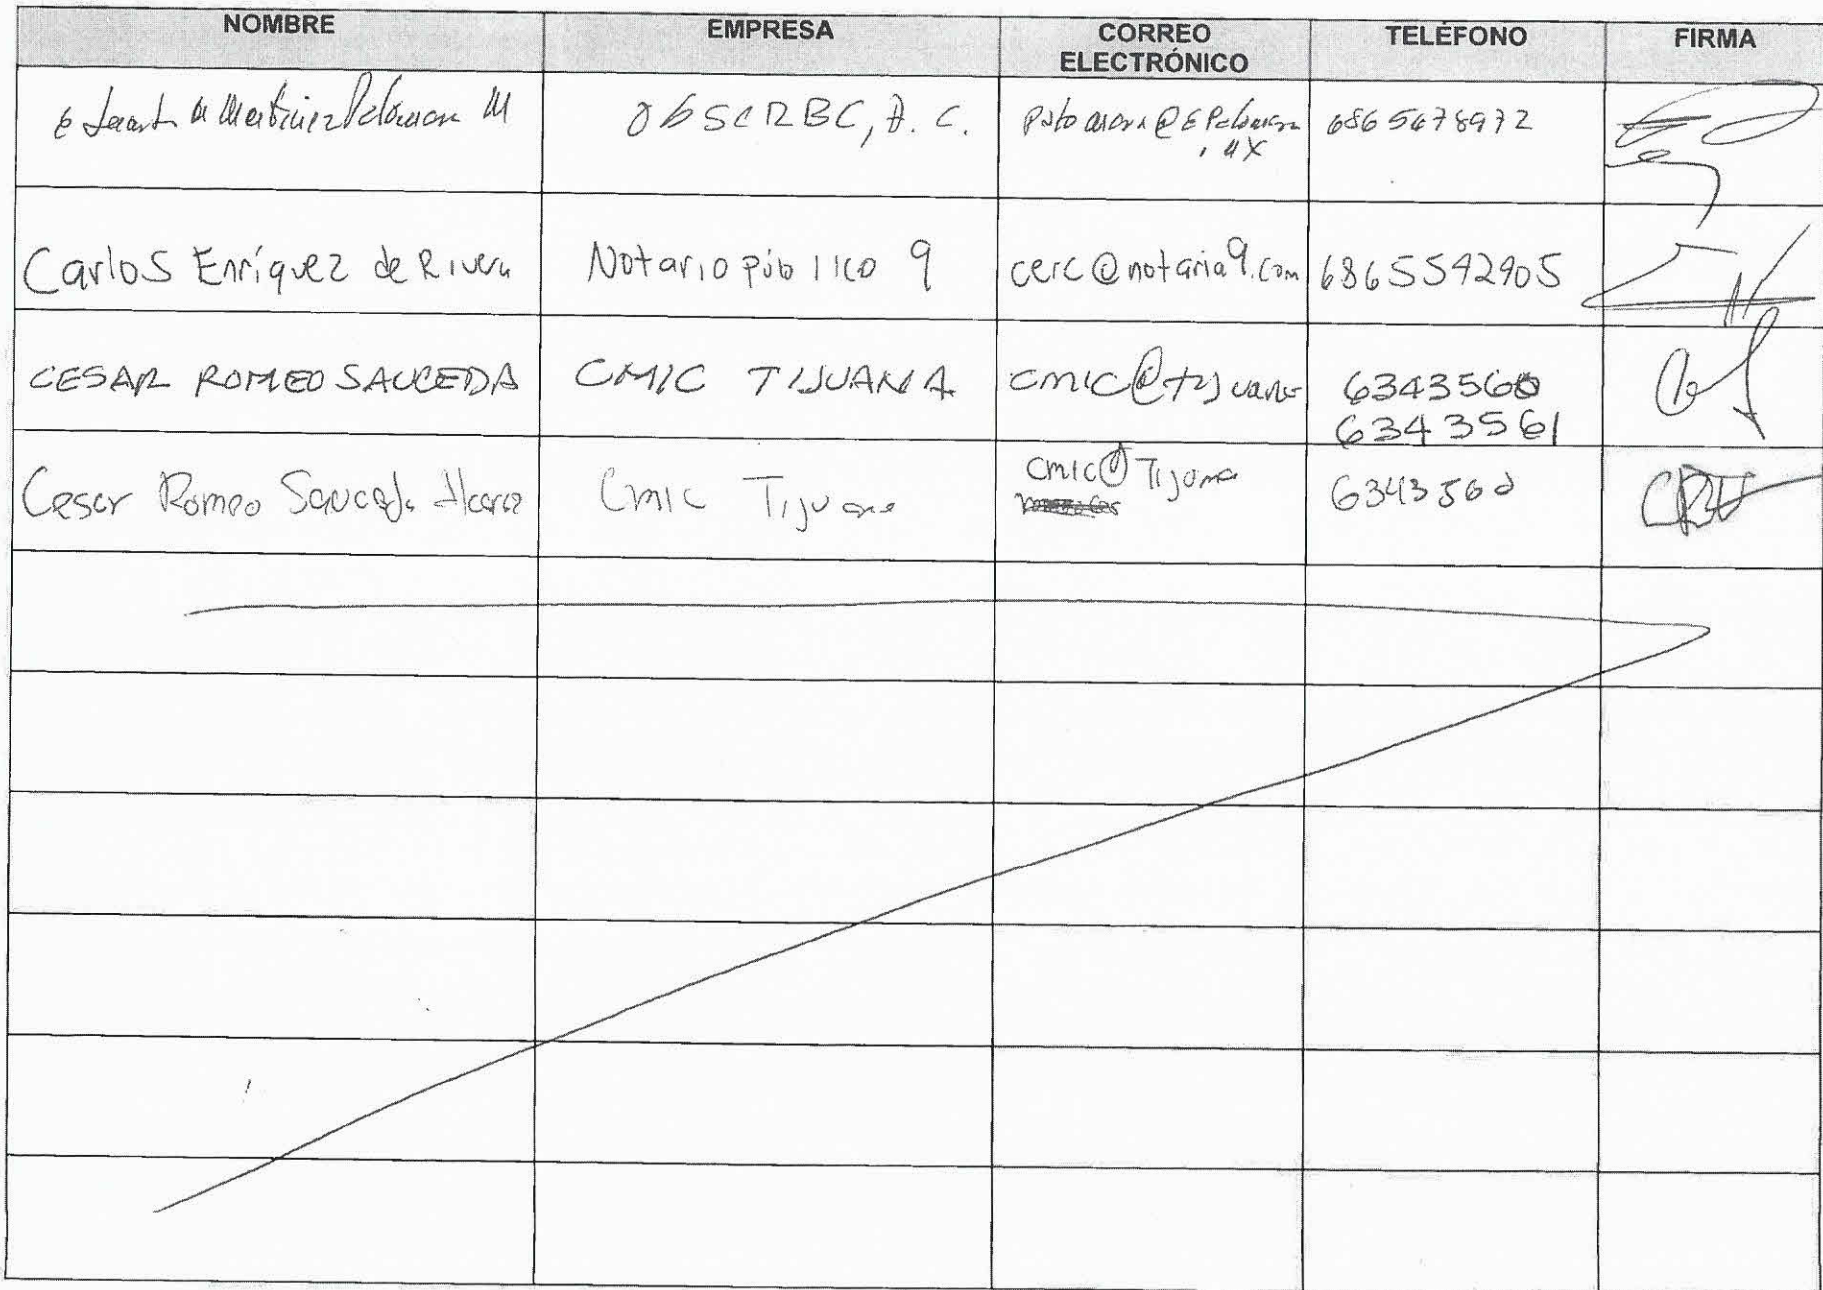 NOMBRE
EMPRESA
CORREO
ELECTRÓNICO
TELÉFONO
FIRMA
Martinez Palomera M
OBSCRBC, A. C.
.MX
6865678972
Carlos Enríquez de Rivera
Notario público 9
cerc@notaria9.com
6865542905
CESAR ROMEO SAUCEDA
CMIC TIJUANA
cmic@tijuana
6343560
6343561
Cesar Romeo Sauceda
Cmic Tijuana
cmic@Tijuana
6343560